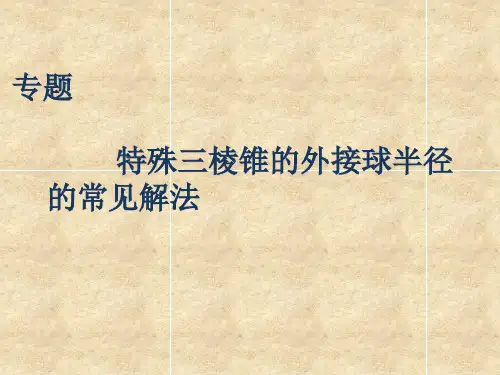 专题
特殊三棱锥的外接球半径
的常见解法